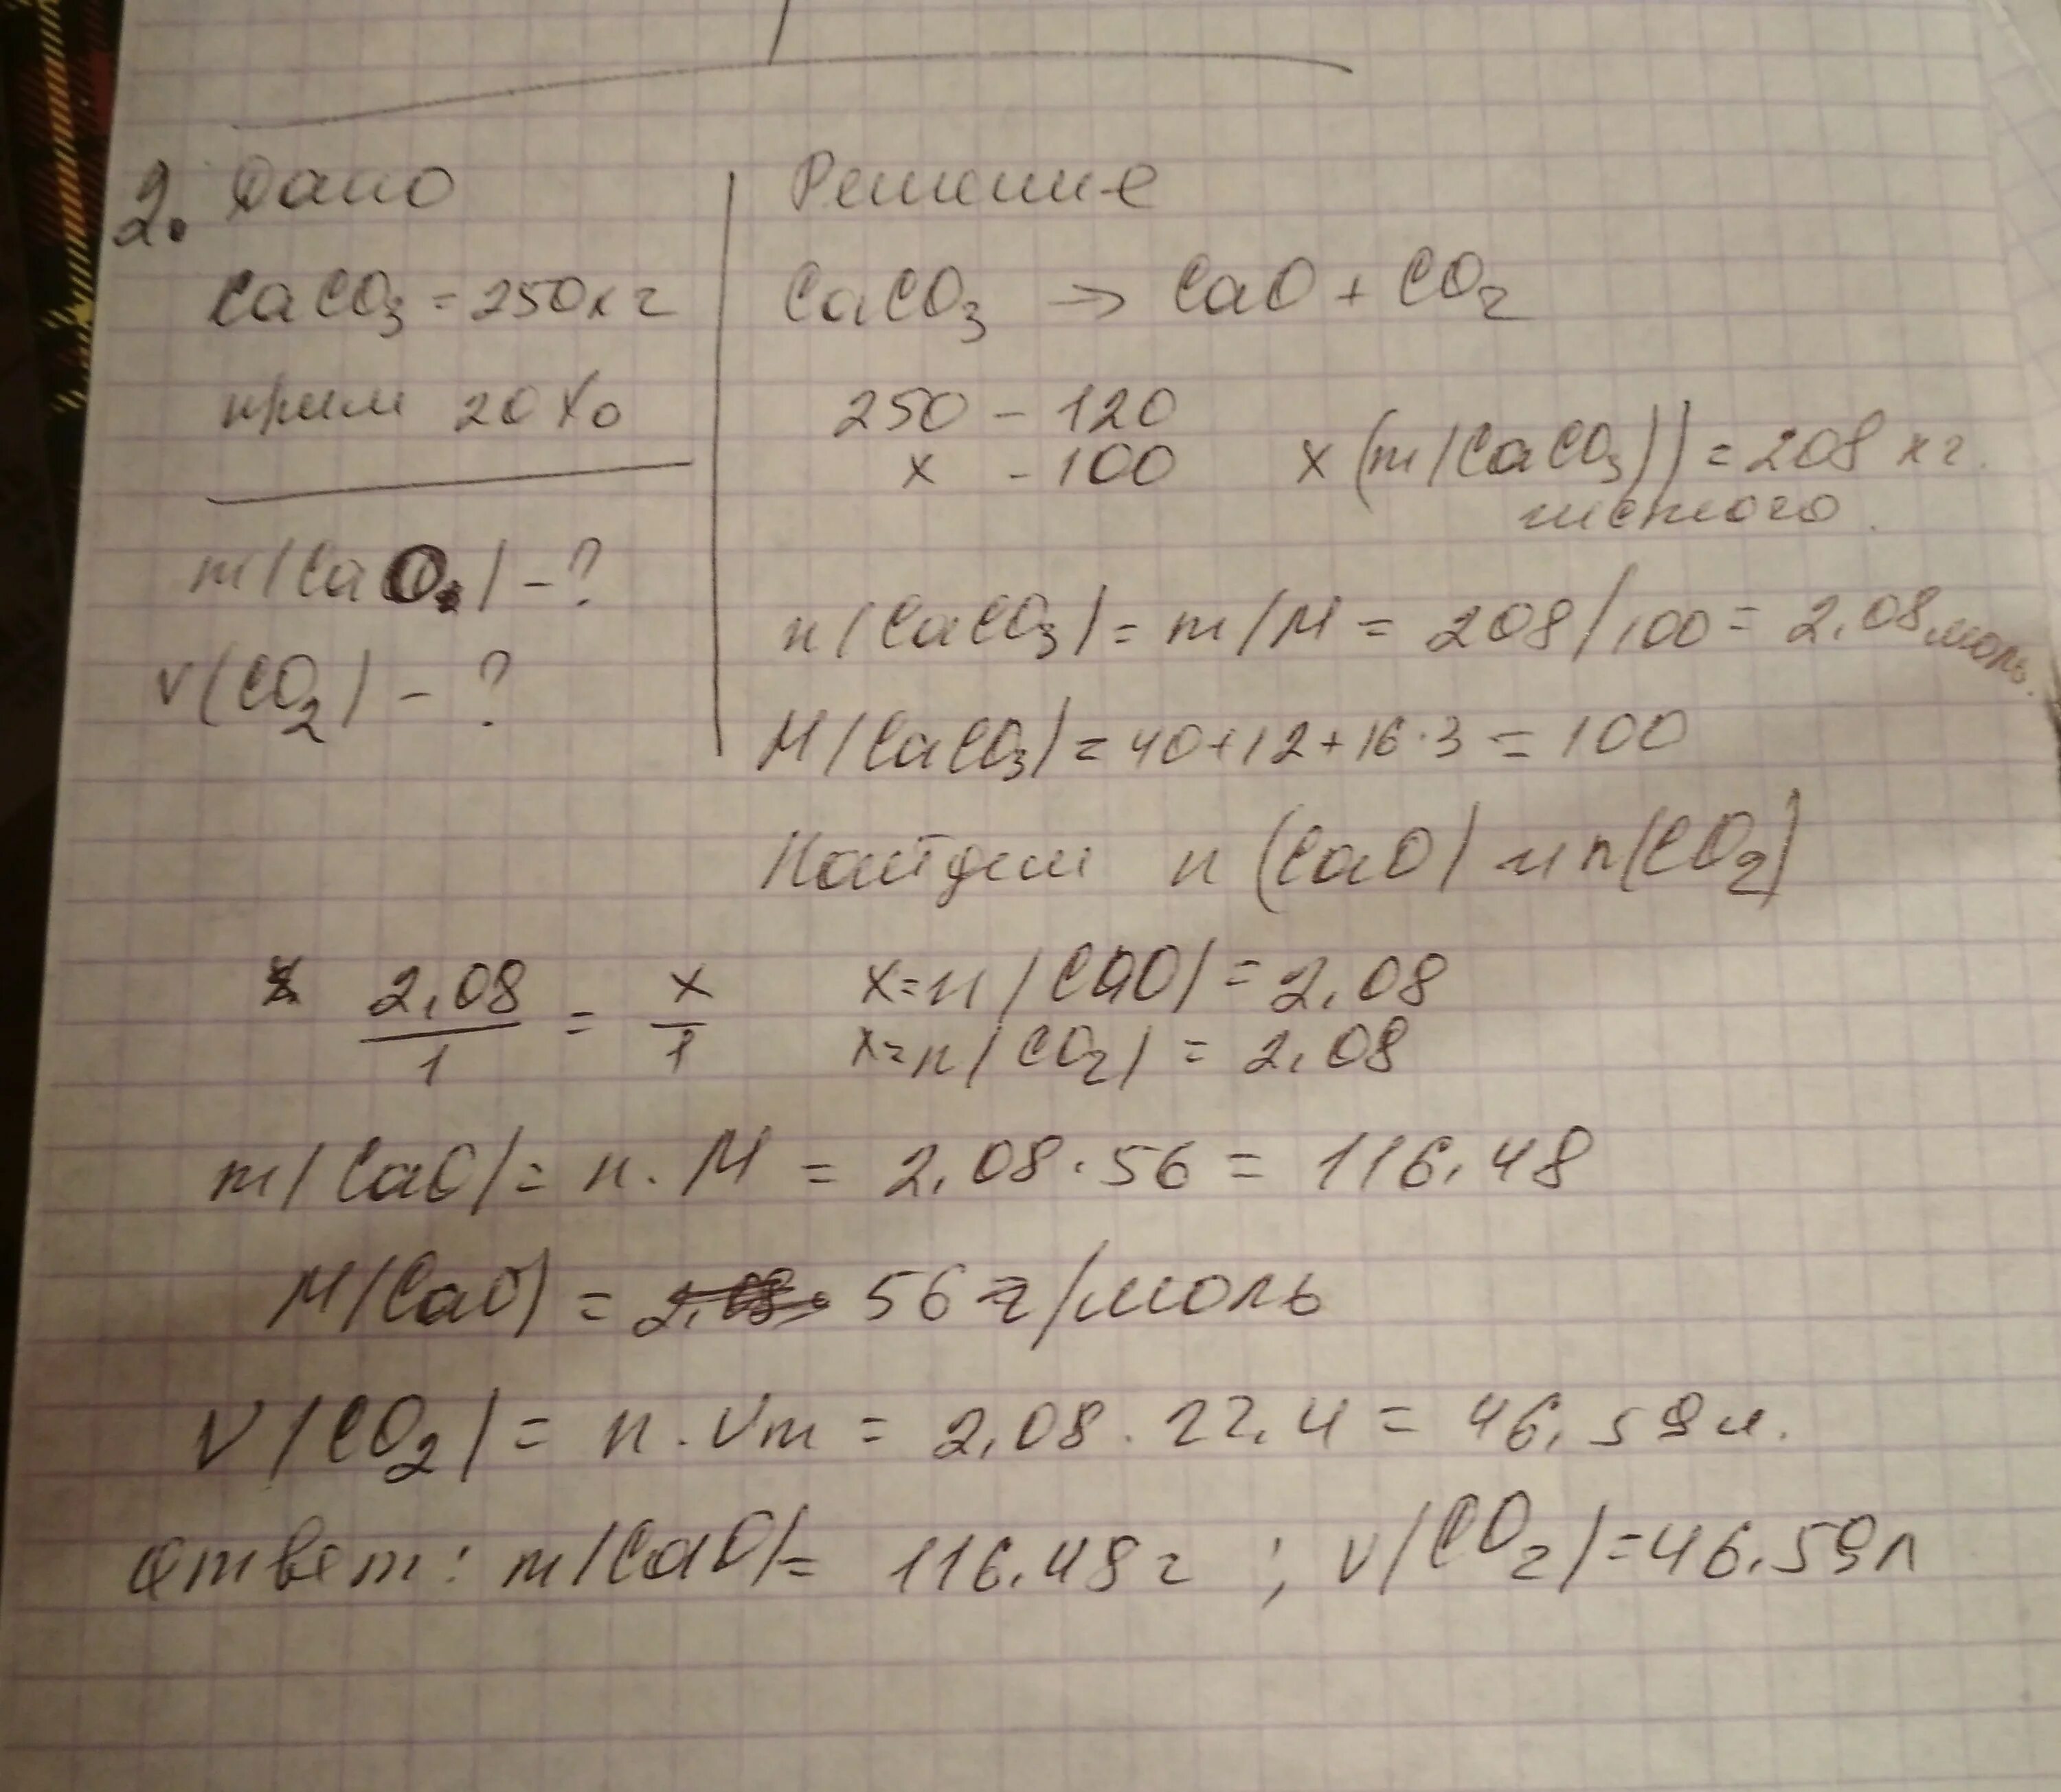 2. Дано
Решение
CaCO3 = 250 кг
CaCO3 → CaO + CO2
прим 20%
250 – 120
x – 100
x (m/CaCO3)) = 208 кг.
чистого.
m/CaO/ – ?
n/CaCO3/ = m/M = 208/100 = 2,08 моль.
V(CO2) – ?
M/CaCO3/ = 40+12+16·3 = 100
Найдем n (CaO) и n(CO2)
2,08/1 = x/1
x=n/CaO/ = 2,08
x=n/CO2/ = 2,08
m/CaO/ = n·M = 2,08·56 = 116,48
M/CaO) = 56 г/моль
V/CO2/ = n·Vm = 2,08·22,4 = 46,59 л.
Ответ: m/CaO/= 116,48 г ; V/CO2/=46,59 л